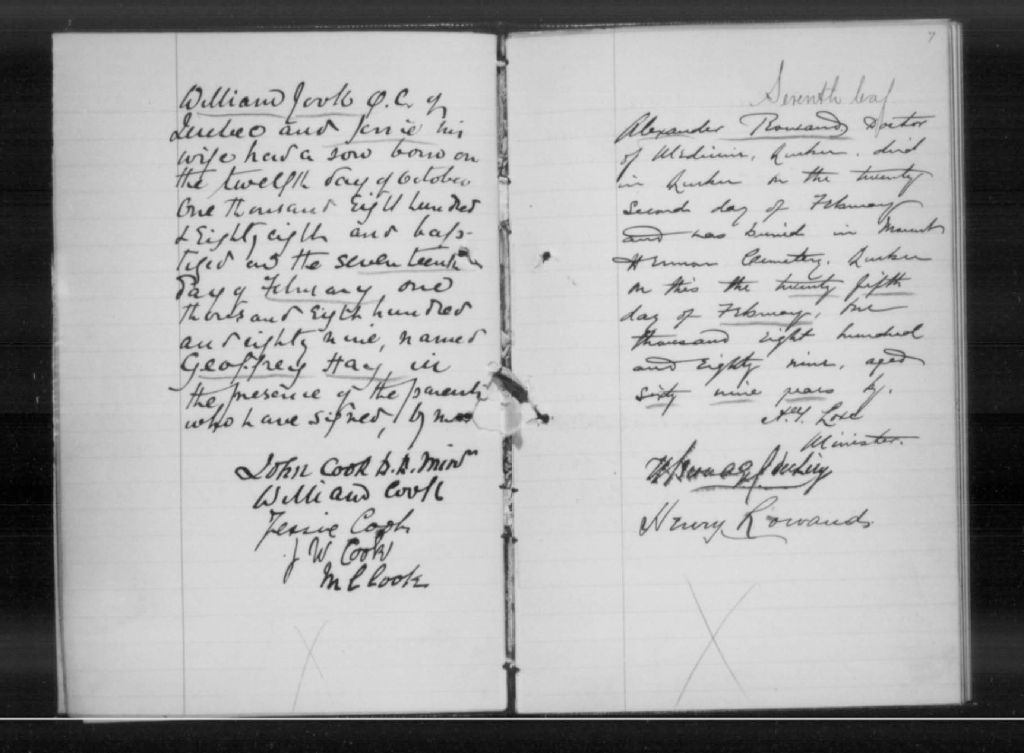 William Cook Q.C. of
Quebec and Jessie his
wife had a son born on
the twelfth day of October
One thousand Eight hundred
& Eighty eighth and bap-
tized on the seventeenth
day of February one
thousand Eight hundred
and eighty nine, named
Geoffrey Hay, in
the presence of the parents
who have signed, by me
John Cook D.D. Minr
William Cook
Jessie Cook
J W Cook
M C Cook
7
Seventh leaf
Alexander Rowand Doctor
of Medicine, Quebec, died
in Quebec on the twenty
second day of February
and was buried in Mount
Hermon Cemetery, Quebec
on this the twenty fifth
day of February, one
thousand eight hundred
and Eighty nine, aged
sixty nine years by.
A.T. Love
Minister.
Henry Rowand